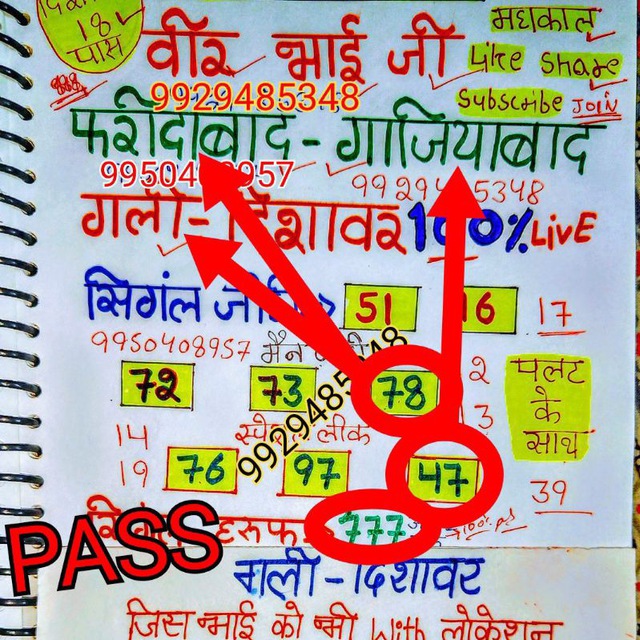 18
पास
महाकाल
वीर भाई जी
Like Share
Subscribe JOIN
888
9929485348
फरीदाबाद - गाजियाबाद
9950408957
9929485348
गली - दिशावर 100% LivE
सिगंल जोड़ी 51 16 17
9950408957
9929485348
72 73 78 2
पलट
के
साथ
14 3
19 76 97 47 39
हरूफ 777
PASS
गली - दिशावर
जिस भाई को भी With लोकेशन